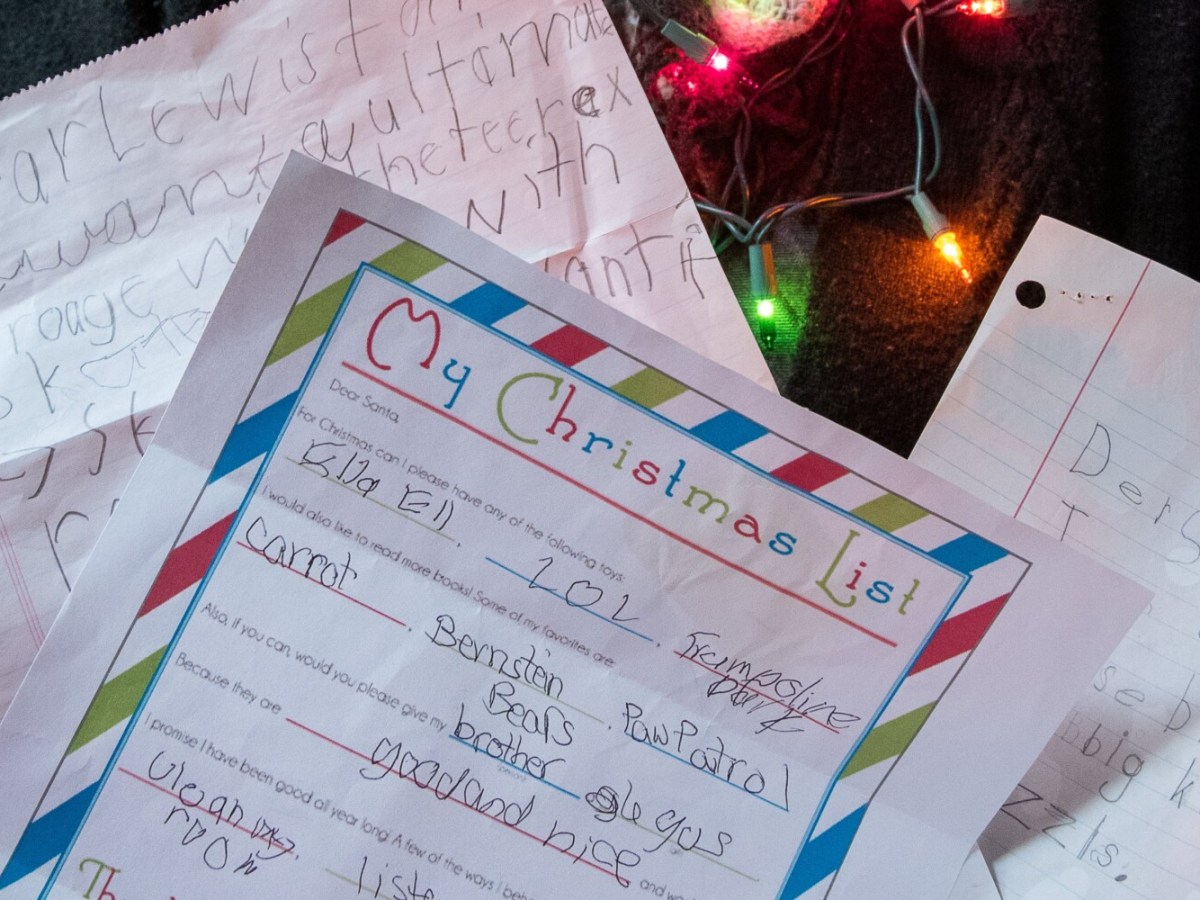 ar Lewist
want a ultamat
the teerex
roage with
ant it
sk
My Christmas List
Dear Santa,
For Christmas can I please have any of the following toys:
LOL, Trampoline Park
I would also like to read more books! Some of my favorites are:
Carrot, Bernstein Bears, Paw Patrol
Also, if you can, would you please give my brother
Because they are good and nice and wo
I promise I have been good all year long! A few of the ways I beh
clean room, list
Th
Der
I
se b
big k
zzls.